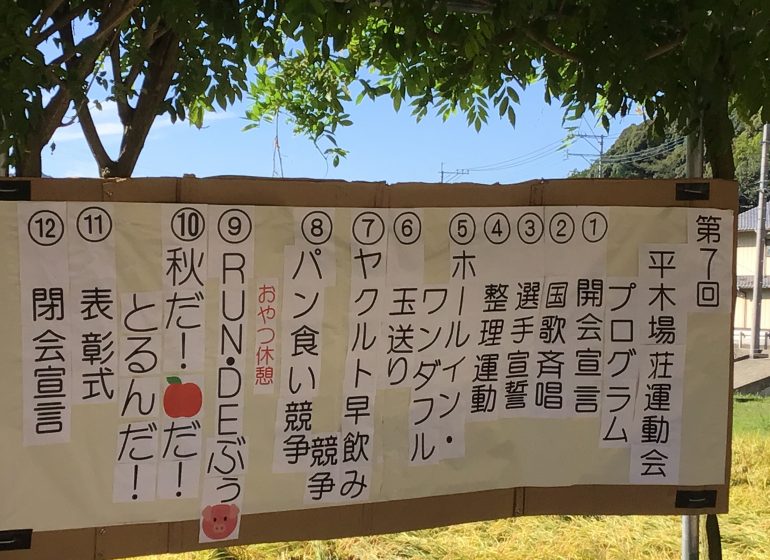 第7回
平木場荘運動会
プログラム
①開会宣言
②国歌斉唱
③選手宣誓
④整理運動
⑤ホールイン・
ワンダフル
⑥玉送り
⑦ヤクルト早飲み
競争
⑧パン食い競争
おやつ休憩
⑨RUN・DEぶぅ
⑩秋だ!🍎だ!
とるんだ!
⑪表彰式
⑫閉会宣言